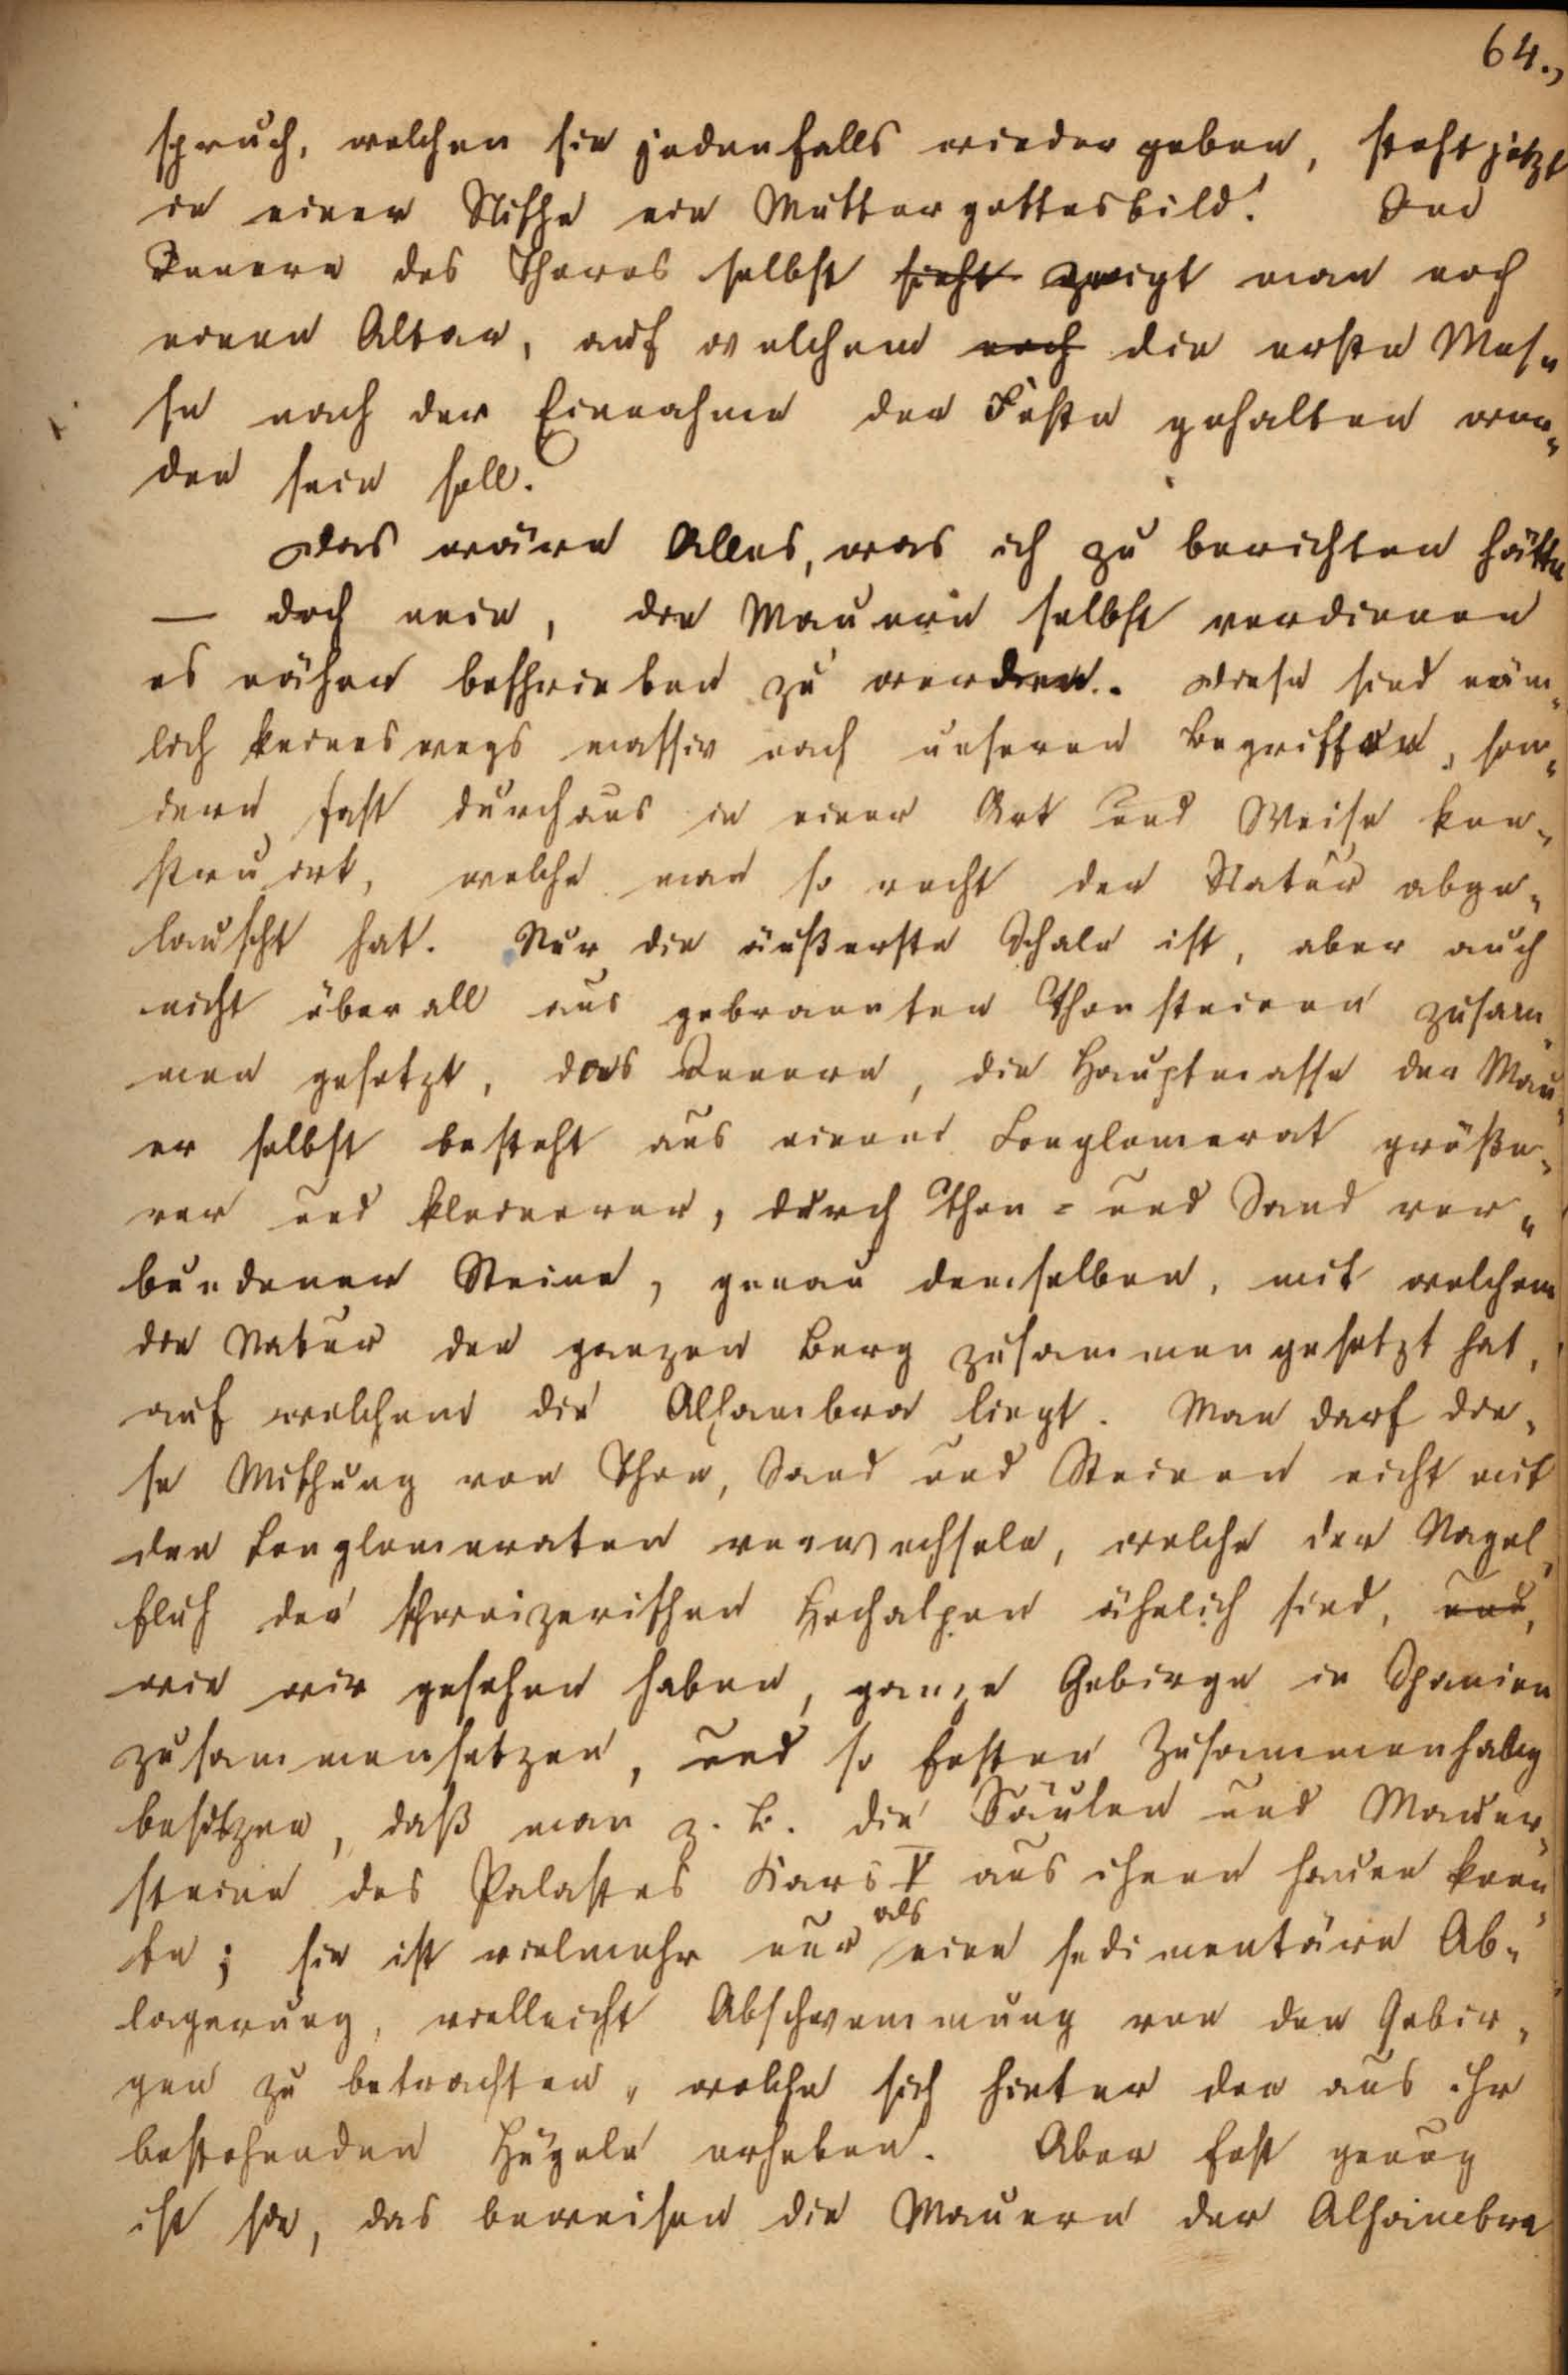 64.,
spruch, welchen sie jedenfalls wieder geben, steht jetzt
in einer Nische ein Muttergottesbild! Im
Innern des Thores selbst sieht zeigt man noch
einen Altar, auf welchem noch die erste Mes„
se nach der Einnahme der Feste gehalten wor„
den sein soll.
Das wäre Alles, was ich zu berichten hätte
— doch nein, die Mauern selbst verdienen
es näher beschrieben zu werden. Diese sind näm„
lich keineswegs massiv nach unseren Begriffen, son„
dern fast durchaus in einer Art und Weise kon„
struirt, welche man so recht der Natur abge„
lauscht hat. Nur die äußerste Schale ist, aber auch
nicht überall aus gebrannten Thonsteinen zusam„
men gesetzt, das Innere, die Hauptmasse der Mau„
er selbst besteht aus einem Conglomerat größe„
rer und kleinerer, durch Thon = und Sand ver„
bundener Steine, genau demselben, mit welchem
die Natur den ganzen Berg zusammengesetzt hat,
auf welchem die Alhambra liegt. Man darf die„
se Mischung von Thon, Sand und Steinen nicht mit
den Conglomeraten verwechseln, welche der Nagel„
fluh der schweizerischen Hochalpen ähnlich sind, und,
wie wir gesehen haben, ganze Gebirge in Spanien
zusammensetzen, und so festen Zusammenhang
besitzen, daß man z. B. die Säulen und Mauer„
steine des Palastes Kars V aus ihnen hauen konn„
te; sie ist vielmehr nur als eine sedimentäre Ab„
lagerung, vielleicht Abschwemmung von den Gebir„
gen zu betrachten, welche sich hinter den aus ihr
bestehenden Hügeln erheben. Aber fest genug
ist sie, das beweisen die Mauern der Alhambra